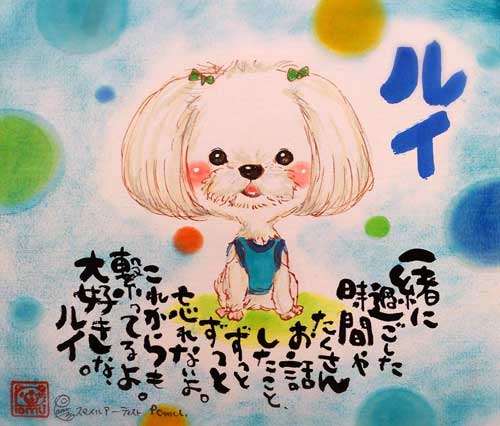 ルイ
一緒に
過ごした
時間や
たくさん
お話
したこと、
ずっと
ずっと
忘れないよ。
これからも
繋ってるよ。
大好きな、
ルイ。
スマイルアーティスト Pomu.